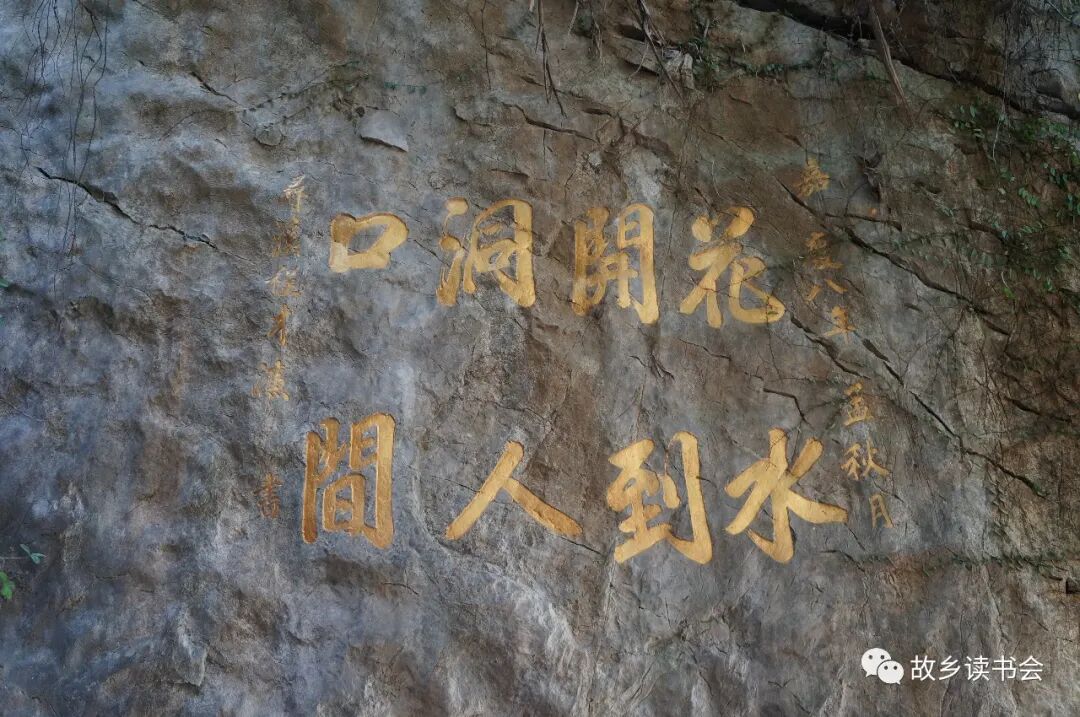 嘉慶八年孟秋月
花開洞口
水到人間
書
故乡读书会